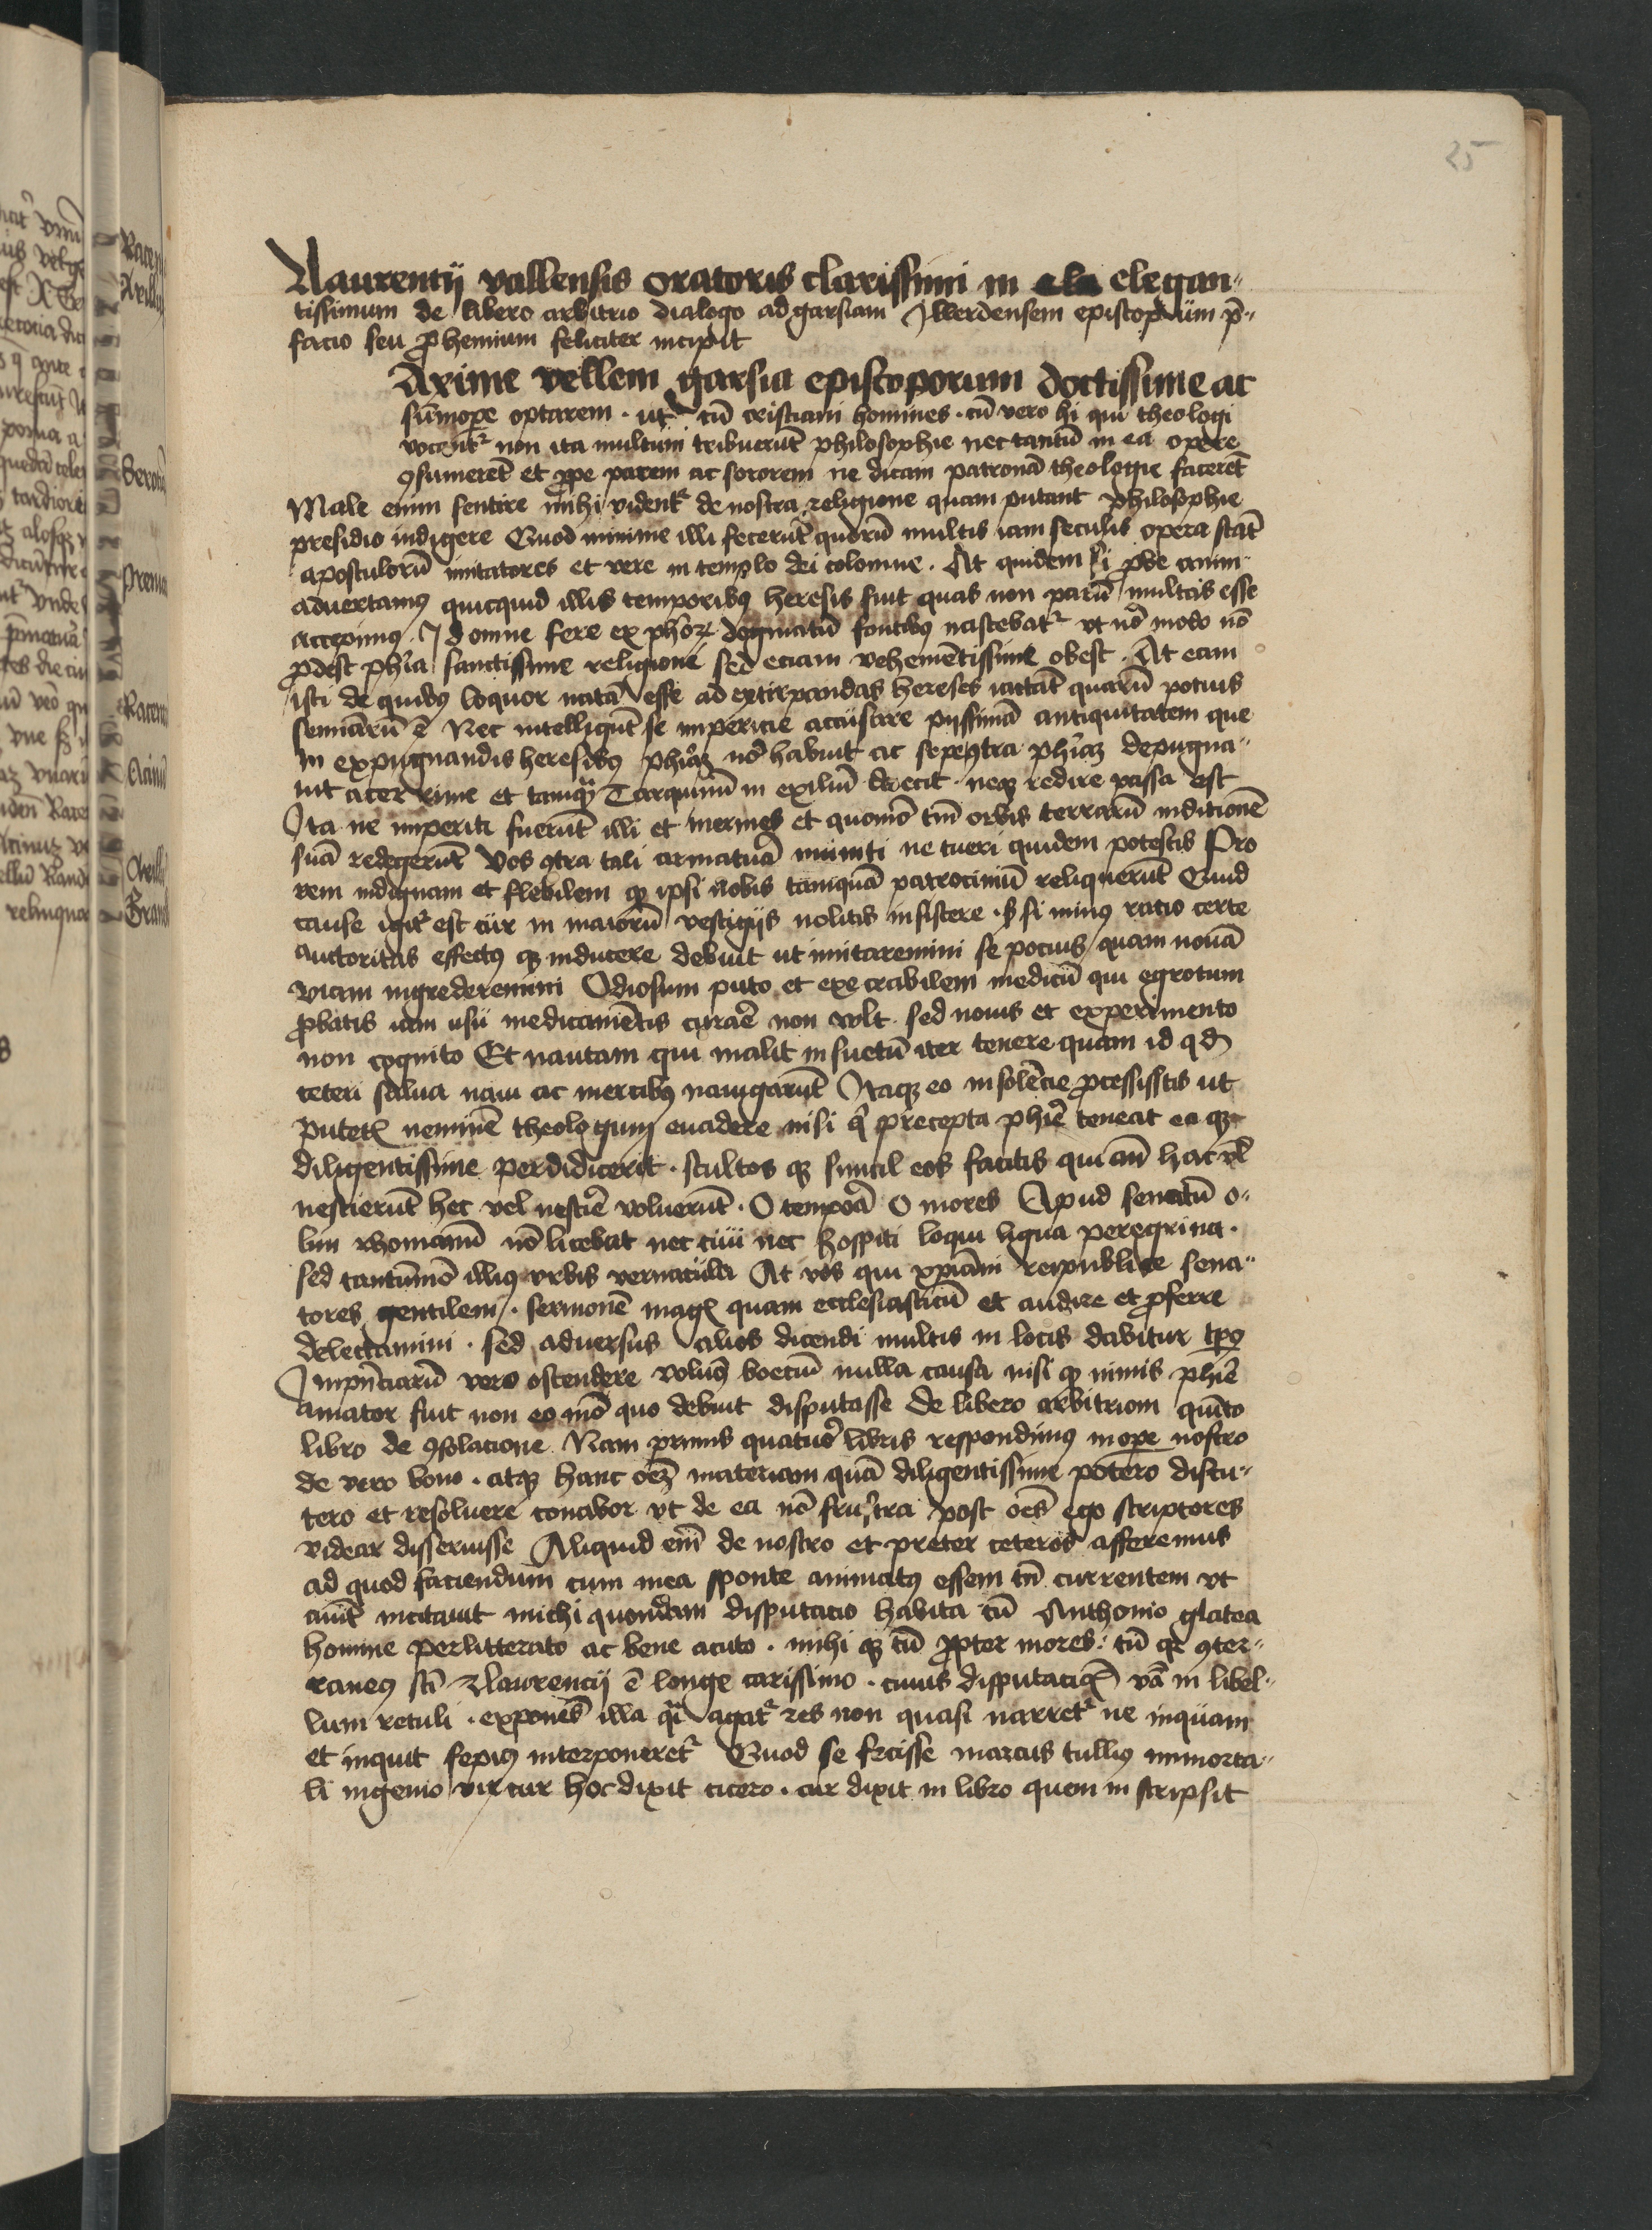 25
Laurentij vallensis oratoris clarissimi in elegan-
tissimum de libero arbitrio dialogo ad garsiam Jllerdensem episcopum p̄-
facio seu ꝓhemium feliciter incipit
Axime vellem garsia episcoporum doctissime ac
sūmope optarem . ut cū cristiani homines . cū vero hi qui theologi
vocentᷣ non ita multum tribuerūt philosophie nec tantū in ea opere
ꝯsumerēt et ꝓpe parem ac sororem ne dicam patronā theologie facerēt
Male enim sentire mihi videntᷣ de nostra religione quam putant philosophie
presidio indigere Quod minime illi fecerūt quorū multis iam seculis opera stāt
apostulorū imitatores et vere in templo dei colomne . At quidem si ꝓbe anim-
advertamꝰ quicquid illis temporibꝰ heresis fuit quas non parū multas esse
accepimꝰ . Jd omne fere ex ph̄oꝝ dogmatū fontibꝰ nascebatᷣ vt nō modo nō
ꝓdest ph̄ia sanctissime religioni sed eciam vehemētissime obest . At eam
isti de quibꝰ loquor natā esse ad extirpandas hereses iactāt quarū potius
seminariū ē Nec intelligūt se impericie accusare pijssimā antiquitatem que
in expugnandis heresibꝰ ph̄iaꝫ nō habuit ac sepe ꝯtra ph̄iaꝫ depugna-
uit acerrime et tamqᷓ Tarquinū in exiliū eiecit . neqꝫ redire passa est
Jta ne imperiti fuerūt illi et inermes et quomō tm̄ orbis terrarū in ditionē
suā redegerūt Vos ꝯtra tali armatura muniti ne tueri quidem potestis Pro
rem indignam et flebilem qꝫ ipsi nobis tamquā patrociniū reliquerūt Quid
cause igitᷣ est cur in maiorū vestigijs nolitis insistere . si minꝰ ratio certe
auctoritas effectꝰ qꝫ inducere debuit ut imitaremini se pocius quam novā
viam ingrederemini Odiosum puto et execrabilem medicū qui egrotum
ꝓbatis iam usu medicamētis curare non vult sed nouis et experimento
non cognito Et nautam qui malit insuetū iter tenere quam id qd̄
ceteri salua naui ac mercibꝰ nauigarūt Jtaqꝫ eo insolēcie ꝓcessistis ut
putetis neminē theologum euadere nisi qui precepta ph̄ie teneat ea qꝫ
diligentissime perdidicerit . stultos qꝫ simul eos facitis qui an̄ hac vl̄
nescierūt hec vel nescire voluerūt . O tempora O mores Apud senatū o-
lim rhomanū nō licebat nec ciui nec hospiti loqui ligua peregrina .
sed tantūmō illiꝰ vrbis vernacula At vos qui xp̄iani reipublice sena-
tores gentilem . sermonē magis quam ecclesiasticū et audire et ꝓferre
delectamini . sed adversus alios dicendi multis in locis dabitur tp̄s
Jmpn̄ciarū vero ostendere volumꝰ boeciū nulla causa nisi qꝫ nimis ph̄ie
amator fuit non eo mō quo debuit disputasse de libero arbitriom quīto
libro de ꝯsolacione Nam primis quatuor libris respondimꝰ in ope nostro
de vero bono . atqꝫ hanc oēꝫ materiam quā diligentissime potero discu-
tero et resoluere conabor vt de ea nō frustra post oēs ego scriptores
videar disseruisse Aliquid em̄ de nostro et preter ceteros afferemus
ad quod faciendum cum mea sponte animatꝰ essem tn̄ currentem vt
aiūt incitauit michi quondam disputacio habita cū Anthonio glatea
homine perlitterato ac bene acuto . mihi qꝫ cū ꝓpter mores . tū qꝫ ꝯter-
raneꝰ sc̄i Laurencij ē longe carissimo . cuius disputacionis in libel-
lum retuli . exponēs illa qᷓi agatᷣ res non quasi narretᷣ ne inquam
et inquit sepiꝰ interponeretᷣ Quod se fecisse marcus tulliꝰ immorta-
li ingenio vir cur hoc dixit cicero . cur dixit in libro quem in scripsit